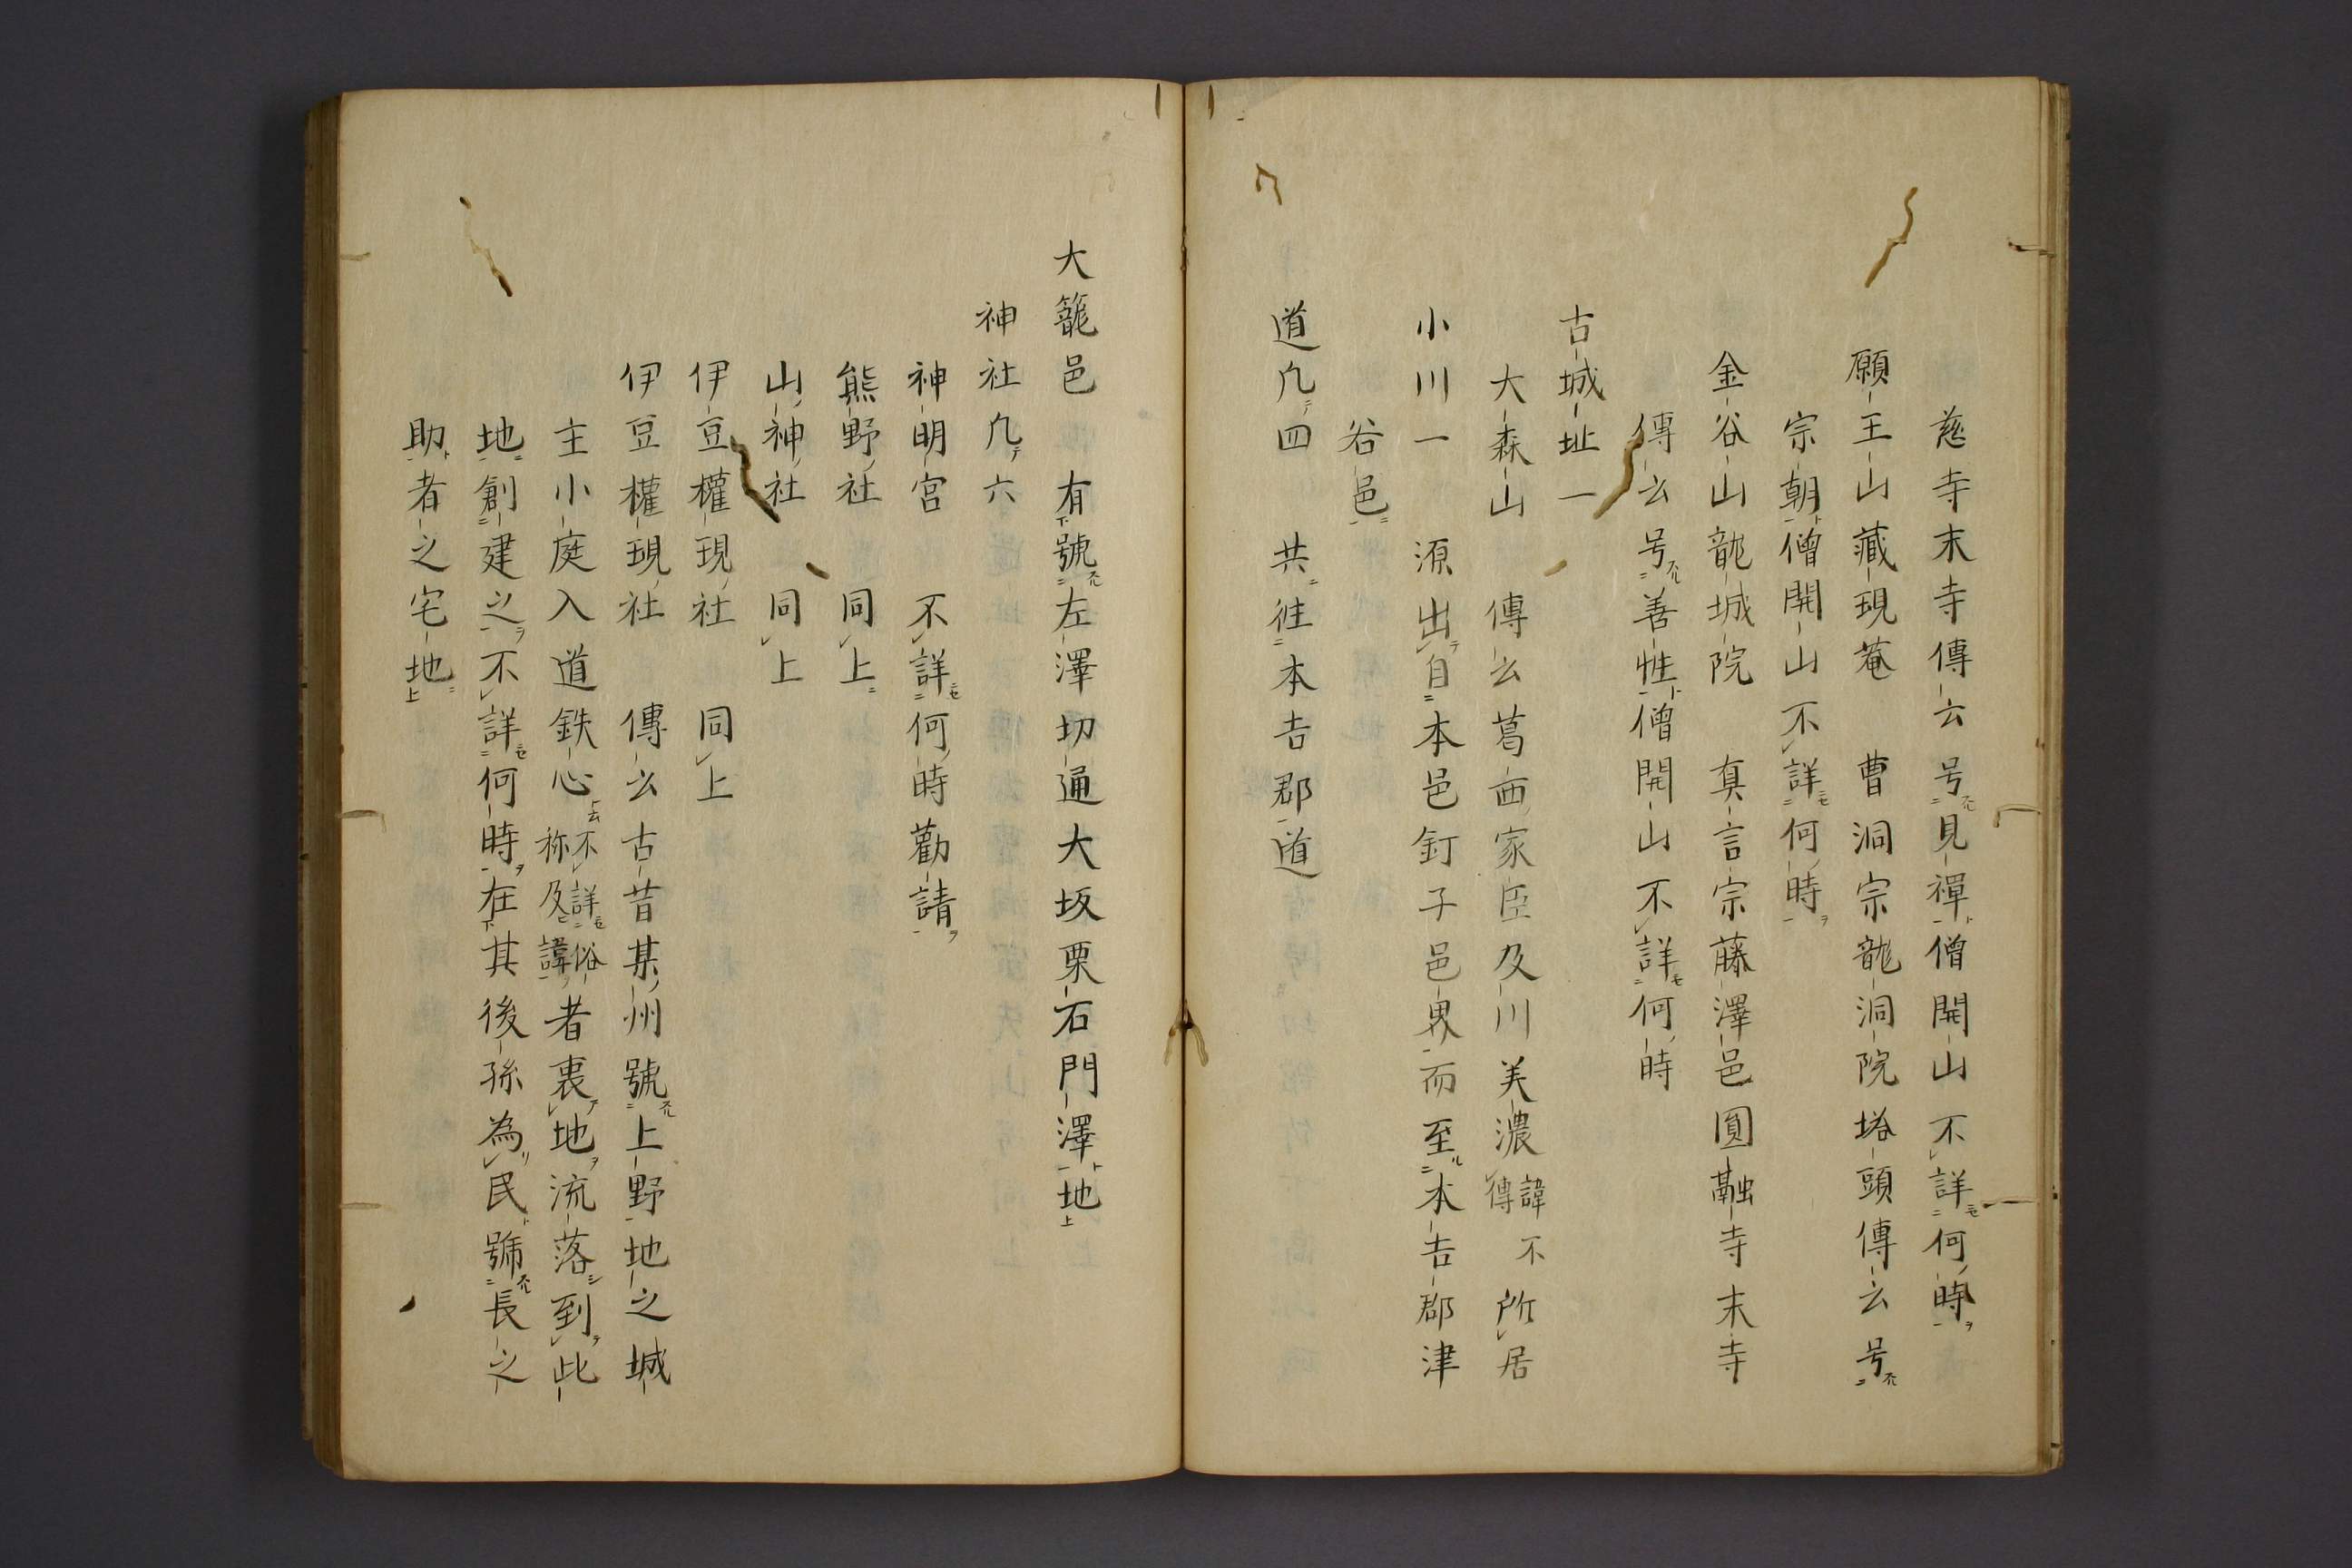 慈寺末寺傳云号見禪僧開山不詳何時
願王山藏現菴　曹洞宗龍洞院塔頭傳云号
宗朝僧開山不詳何時
金谷山龍城院　真言宗藤澤邑圓融寺末寺
傳云号善性僧開山不詳何時
古城址一
大森山　傳云葛西家臣及川美濃諱不傳所居
小川一　源出自本邑釘子邑界而至本吉郡津
谷邑
道凢四　共徃本吉郡道
大籠邑　有號左澤切通大坂栗石門澤地
神社凢六
神明宮　不詳何時勸請
熊野社　同上
山神社　同上
伊豆權現社　同上
伊豆權現社　傳云古昔某州號上野地之城
主小庭入道鉄心不詳俗称及諱者裏地流落到此
地創建之不詳何時在其後孫為民號長之
助者之宅地